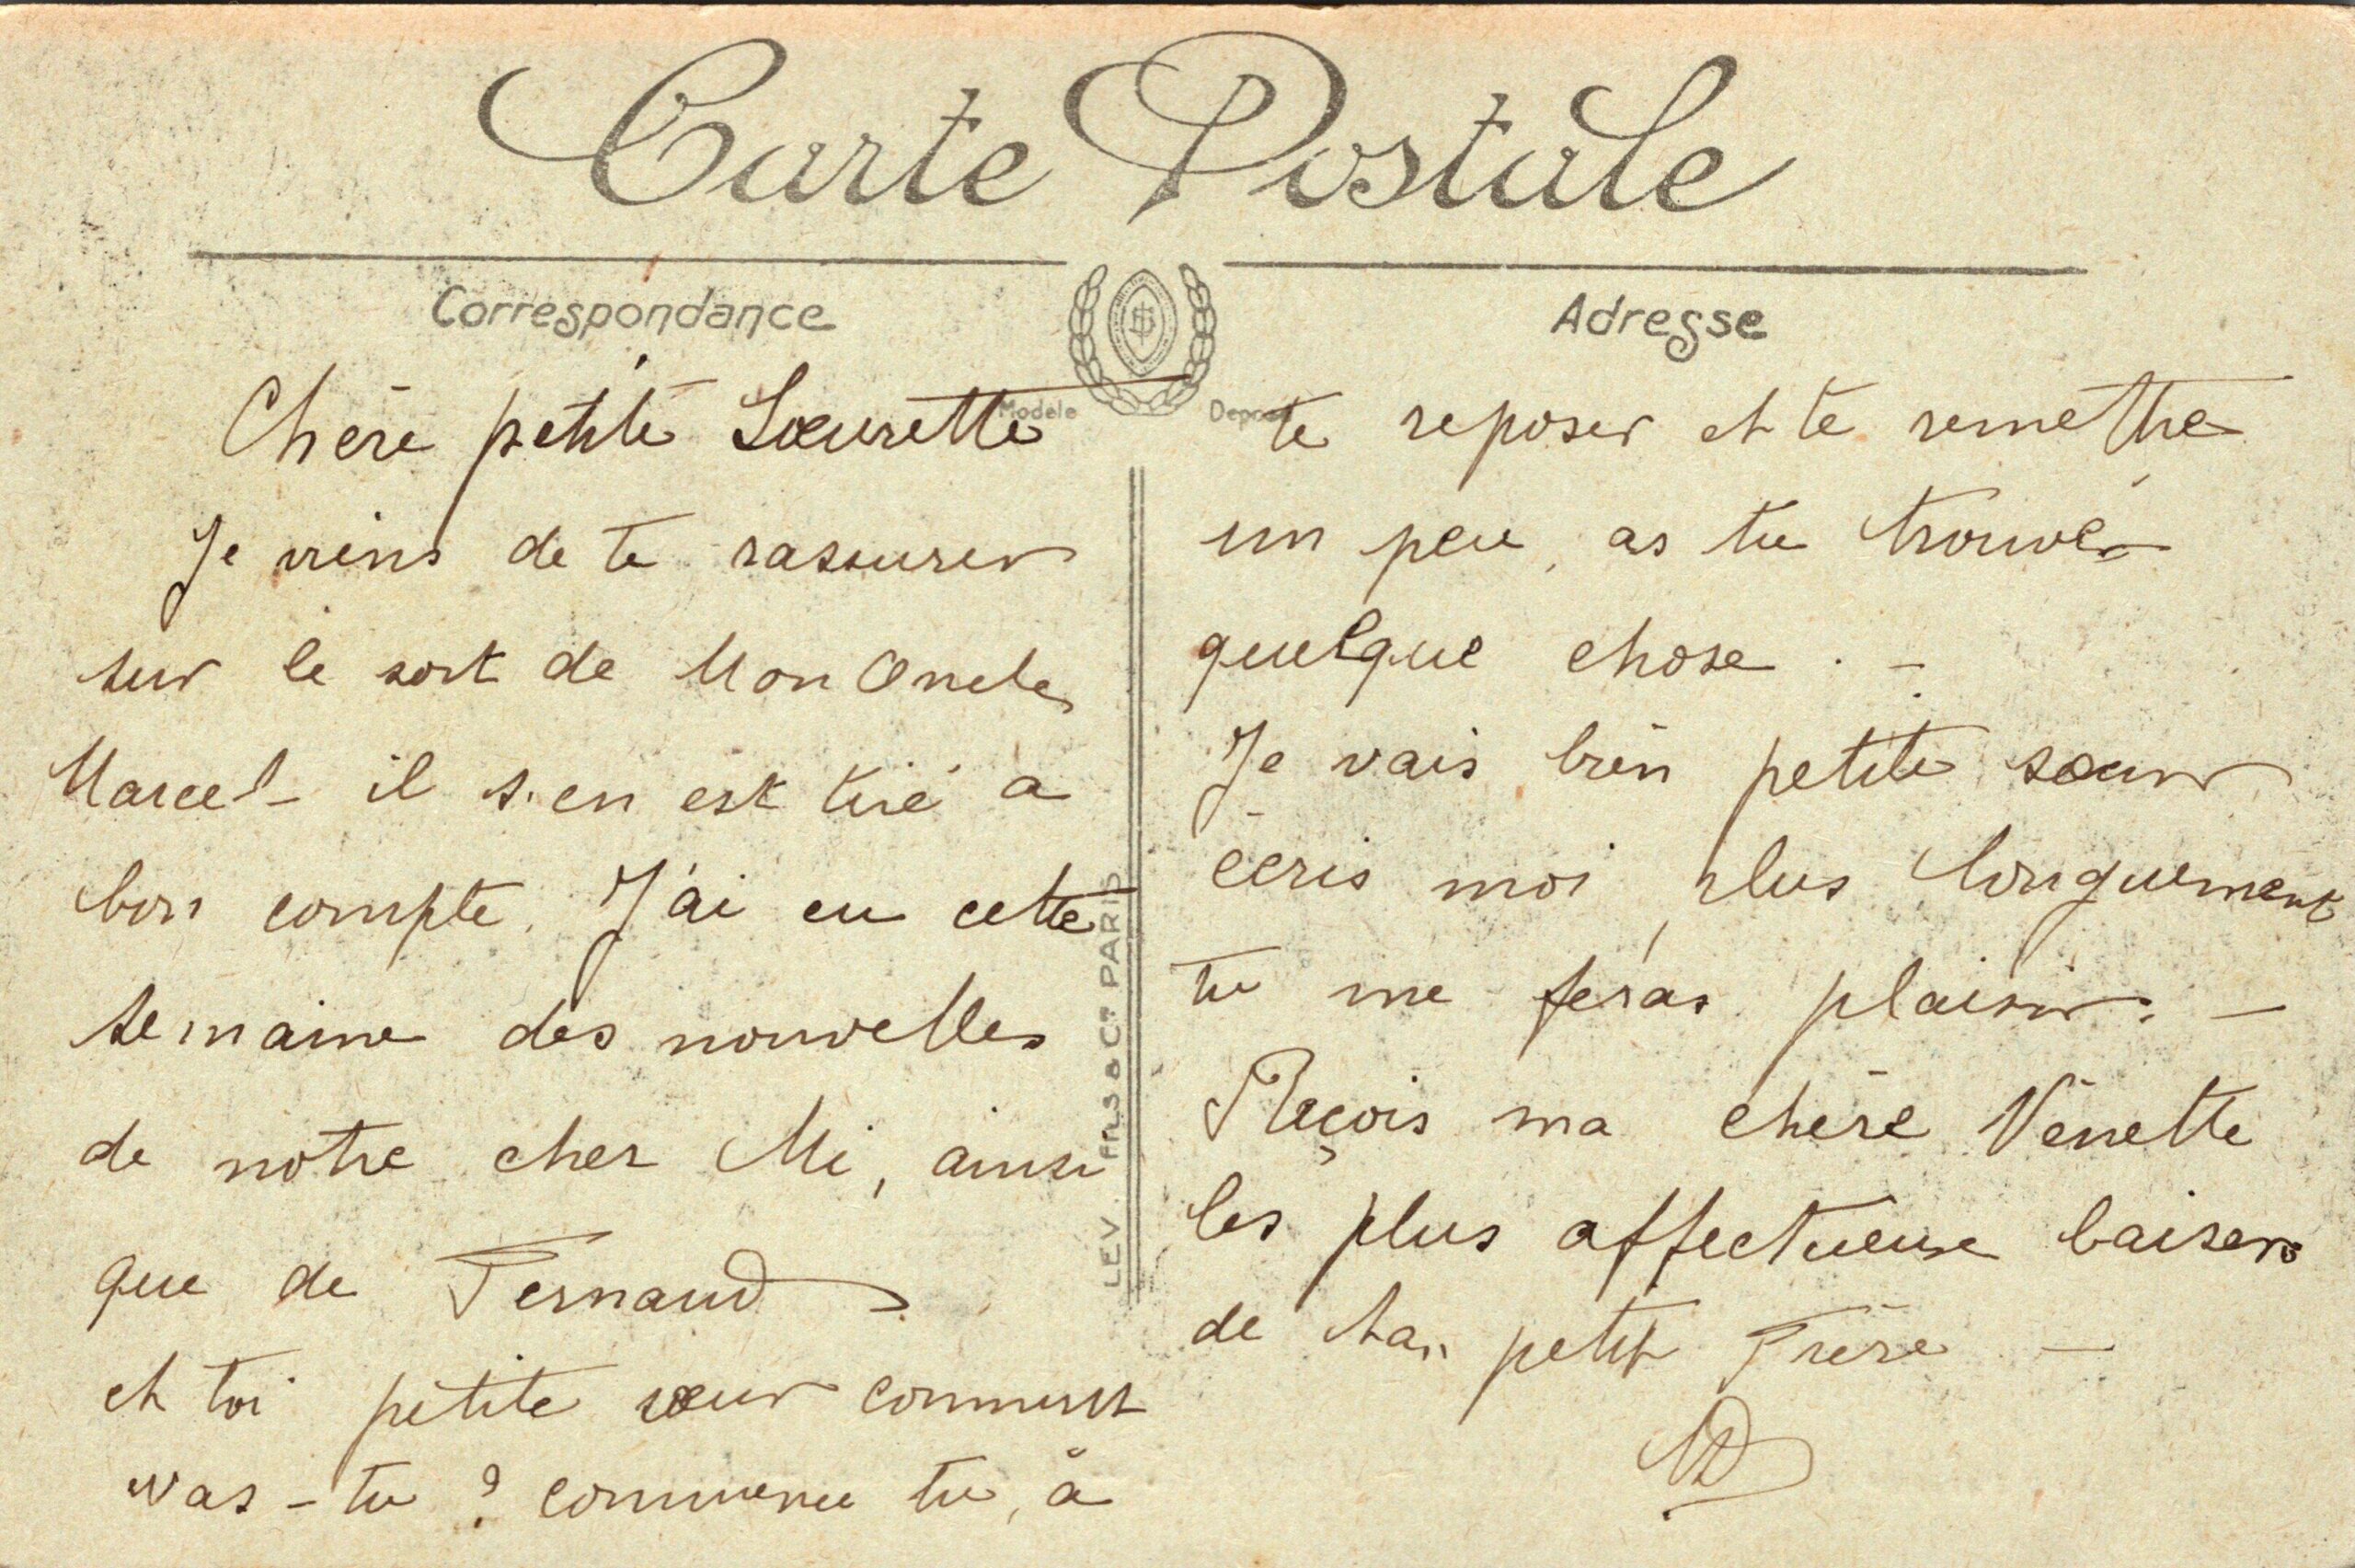 Carte Postale
Correspondance
Adresse
Modèle Déposé
Chère petite Sœurette
Je viens de te rassurer
sur le sort de Mon Oncle
Marcel - il s'en est tiré a
bon compte. J'ai eu cette
semaine des nouvelles
de notre cher Mi, ainsi
que de Fernand.
et toi petite sœur comment
vas-tu ? commence tu, à
te reposer et te remettre
un peu, as tu trouvé
quelque chose . -
Je vais bien petite sœur
écris moi plus longuement
tu me feras plaisir. -
Reçois ma chère Vénette
les plus affectueux baisers
de ton petit Frère -
LEV Fils & Cie PARIS